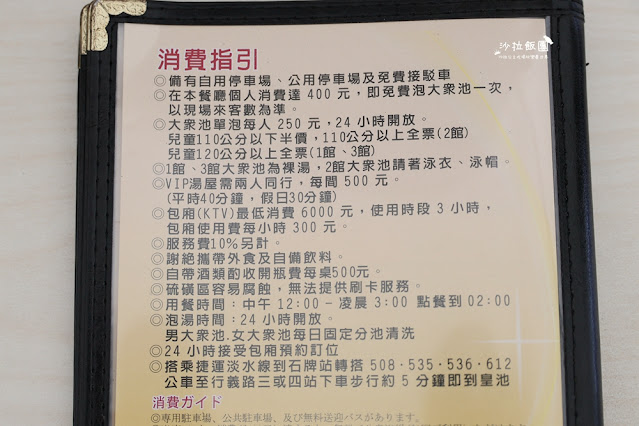 沙拉飯團
消費指引
◎備有自用停車場、公用停車場及免費接駁車
◎在本餐廳個人消費達 400 元，即免費泡大眾池一次，
以現場來客數為準。
◎大眾池單泡每人 250 元，24 小時開放。
兒童110公分以下半價，110公分以上全票(2館)
兒童120公分以上全票(1館、3館)
◎1館、3館大眾池為裸湯，2館大眾池請著泳衣、泳帽。
◎VIP湯屋需兩人同行，每間 500 元。
(平時40分鐘，假日30分鐘)
◎包廂(KTV)最低消費 6000 元，使用時段 3 小時，
包廂使用費每小時 300 元。
◎服務費10%另計。
◎謝絕攜帶外食及自備飲料。
◎自帶酒類酌收開瓶費每桌500元。
◎硫磺區容易腐蝕，無法提供刷卡服務。
◎用餐時間：中午 12:00 – 凌晨 3:00 點餐到 02:00
◎泡湯時間：24 小時開放。
男大眾池.女大眾池每日固定分池清洗
◎24 小時接受包廂預約訂位
◎搭乘捷運淡水線到石牌站轉搭 508‧535‧536‧612
公車至行義路三或四站下車步行約 5 分鐘即到皇池
消費ガイド
◎専用駐車場、公共駐車場、及び無料送迎バスがあります。